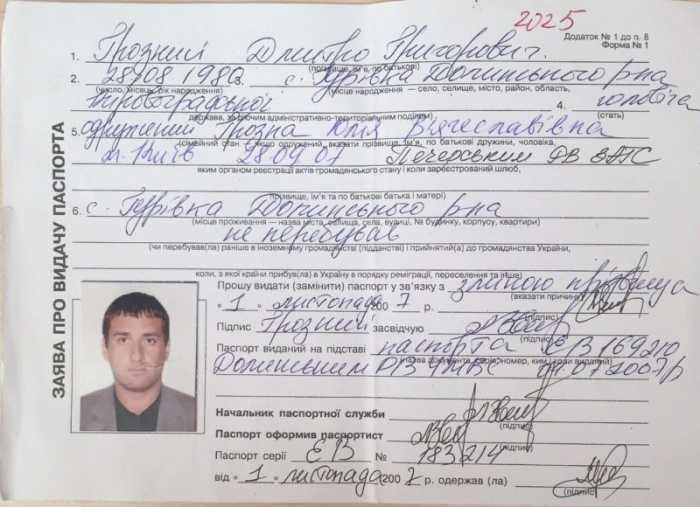 2025
Додаток № 1 до п. 8
Форма № 1
ЗАЯВА ПРО ВИДАЧУ ПАСПОРТА
1. Грозний Дмитро Григорович.
(прізвище, ім'я, по батькові)
2. 28.08.1986 с. Гурівка Долинського р-на
(число, місяць, рік народження) (місце народження — село, селище, місто, район, область,
Кіровоградської 4. чоловіча
держава, за чинним адміністративно-територіальним поділом) (стать)
5. одружений Грозна Юлія Вячеславівна
(сімейний стан — якщо одружений, вказати прізвища, ім'я, по батькові дружини, чоловіка,
м. Київ 28.09.07 Печерським РВ ЗАГС
яким органом реєстрації актів громадянського стану і коли зареєстрований шлюб,
прізвище, ім'я та по батькові батька і матері)
6. с. Гурівка Долинського р-на
(місце проживання — назва міста, селища, села, вулиці, № будинку, корпусу, квартири)
не перебував
(чи перебував(ла) раніше в іноземному громадянстві (підданстві) і прийнятий(а) до громадянства України,
коли, з якої країни прибув(ла) в Україну в порядку реміграції, переселення та інше)
Прошу видати (замінити) паспорт у зв'язку з зміною прізвища
(вказати причину)
" 1 " листопада 200 7 р.
(підпис)
Підпис Грозний засвідчую
(підпис)
Паспорт виданий на підставі паспорта ЕВ 169210
(назва документа, серія, номер, ким і коли виданий)
Долинським РВ УМВС
Начальник паспортної служби
(підпис)
Паспорт оформив паспортист
(підпис)
Паспорт серії ЕВ № 183214
від " 1 " листопада 200 7 р. одержав (ла)
(підпис)